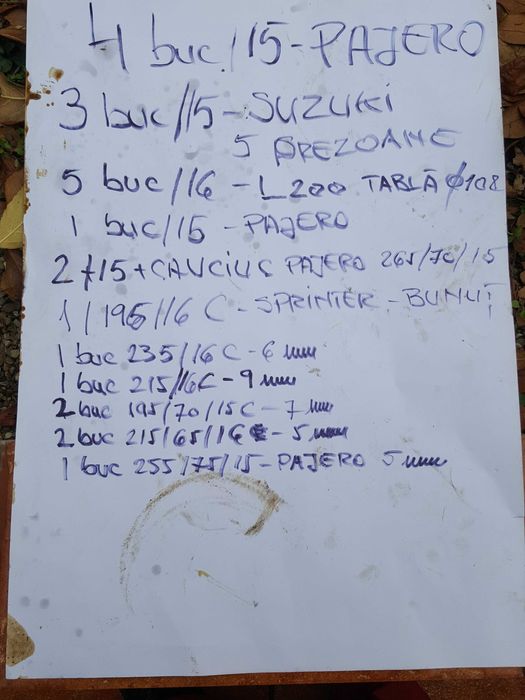 4 buc/15-PAJERO
3 buc//15-SUZUKI
5 PREZOANE
5 buc/16 - L200 TABLĂ Ø108
1 buc/15 - PAJERO
2 /15+CAUCIUC PAJERO 265/70/15
1/195/16C-SPRINTER-BUNUȚ
1 buc 235/16C-6mm
1 buc 215/16C-9mm
2 buc 195/70/15C-7mm
2 buc 215/65/16C-5mm
1 buc 255/75/15-PAJERO 5mm